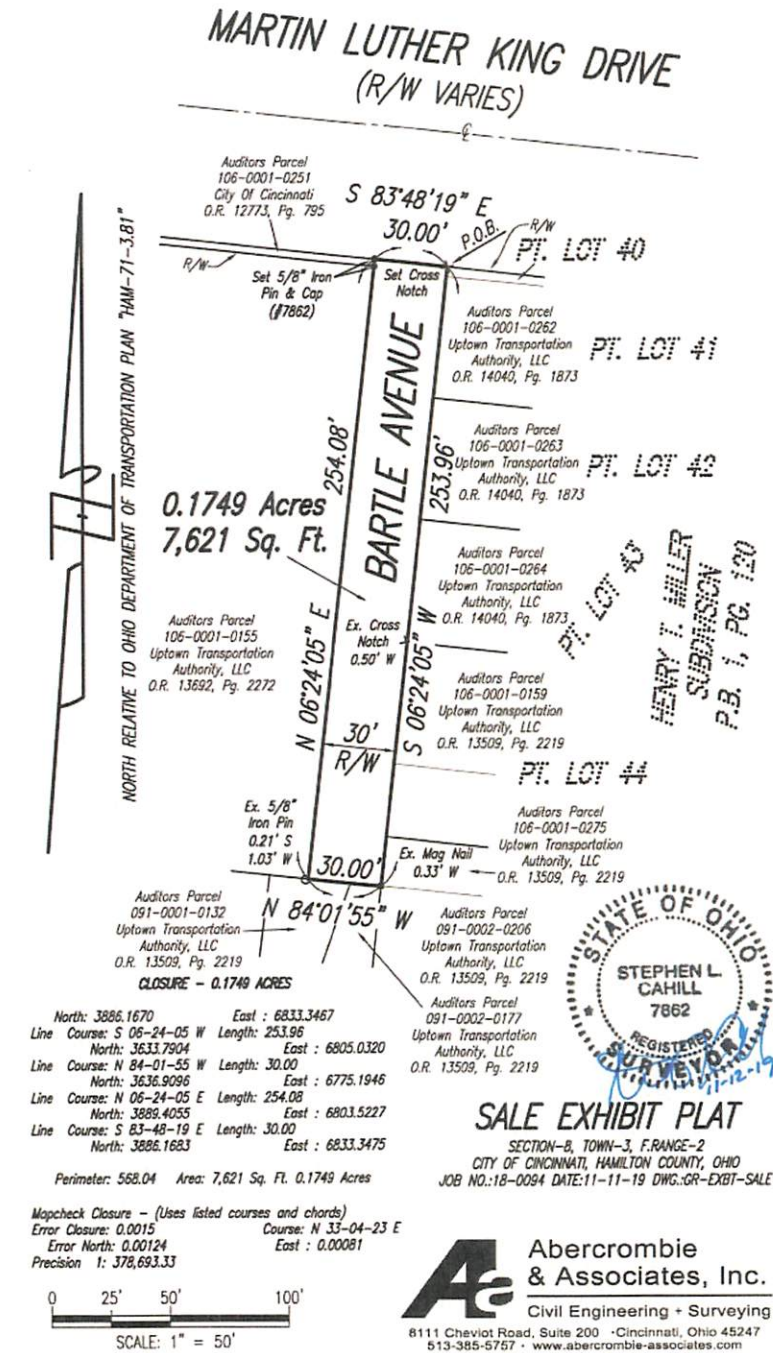 MARTIN LUTHER KING DRIVE
(R/W VARIES)
℄
Auditors Parcel
106-0001-0251
City Of Cincinnati
O.R. 12773, Pg. 795
S 83°48'19" E
30.00'
P.O.B.
R/W
PT. LOT 40
R/W
Set 5/8" Iron
Pin & Cap
(#7862)
Set Cross
Notch
NORTH RELATIVE TO OHIO DEPARTMENT OF TRANSPORTATION PLAN "HAM-71-3.81"
Auditors Parcel
106-0001-0262
Uptown Transportation
Authority, LLC
O.R. 14040, Pg. 1873
PT. LOT 41
BARTLE AVENUE
254.08'
253.96'
Auditors Parcel
106-0001-0263
Uptown Transportation
Authority, LLC
O.R. 14040, Pg. 1873
PT. LOT 42
0.1749 Acres
7,621 Sq. Ft.
Auditors Parcel
106-0001-0264
Uptown Transportation
Authority, LLC
O.R. 14040, Pg. 1873
PT. LOT 43
HENRY T. MILLER
SUBDIVISION
P.B. 1, PG. 120
Auditors Parcel
106-0001-0155
Uptown Transportation
Authority, LLC
O.R. 13692, Pg. 2272
Ex. Cross
Notch
0.50' W
N 06°24'05" E
S 06°24'05" W
Auditors Parcel
106-0001-0159
Uptown Transportation
Authority, LLC
O.R. 13509, Pg. 2219
30'
R/W
PT. LOT 44
Ex. 5/8"
Iron Pin
0.21' S
1.03' W
30.00'
Ex. Mag Nail
0.33' W
Auditors Parcel
106-0001-0275
Uptown Transportation
Authority, LLC
O.R. 13509, Pg. 2219
N 84°01'55" W
Auditors Parcel
091-0001-0132
Uptown Transportation
Authority, LLC
O.R. 13509, Pg. 2219
Auditors Parcel
091-0002-0206
Uptown Transportation
Authority, LLC
O.R. 13509, Pg. 2219
Auditors Parcel
091-0002-0177
Uptown Transportation
Authority, LLC
O.R. 13509, Pg. 2219
STATE OF OHIO
STEPHEN L.
CAHILL
7862
REGISTERED
SURVEYOR
11-12-19
CLOSURE - 0.1749 ACRES
North: 3886.1670 East : 6833.3467
Line Course: S 06-24-05 W Length: 253.96
North: 3633.7904 East : 6805.0320
Line Course: N 84-01-55 W Length: 30.00
North: 3636.9096 East : 6775.1946
Line Course: N 06-24-05 E Length: 254.08
North: 3889.4055 East : 6803.5227
Line Course: S 83-48-19 E Length: 30.00
North: 3886.1683 East : 6833.3475
Perimeter: 568.04 Area: 7,621 Sq. Ft. 0.1749 Acres
Mapcheck Closure - (Uses listed courses and chords)
Error Closure: 0.0015 Course: N 33-04-23 E
Error North: 0.00124 East : 0.00081
Precision 1: 378,693.33
0 25' 50' 100'
SCALE: 1" = 50'
SALE EXHIBIT PLAT
SECTION-8, TOWN-3, F.RANGE-2
CITY OF CINCINNATI, HAMILTON COUNTY, OHIO
JOB NO.:18-0094 DATE:11-11-19 DWG.:GR-EXBT-SALE
Aa
Abercrombie
& Associates, Inc.
Civil Engineering + Surveying
8111 Cheviot Road, Suite 200 · Cincinnati, Ohio 45247
513-385-5757 · www.abercrombie-associates.com